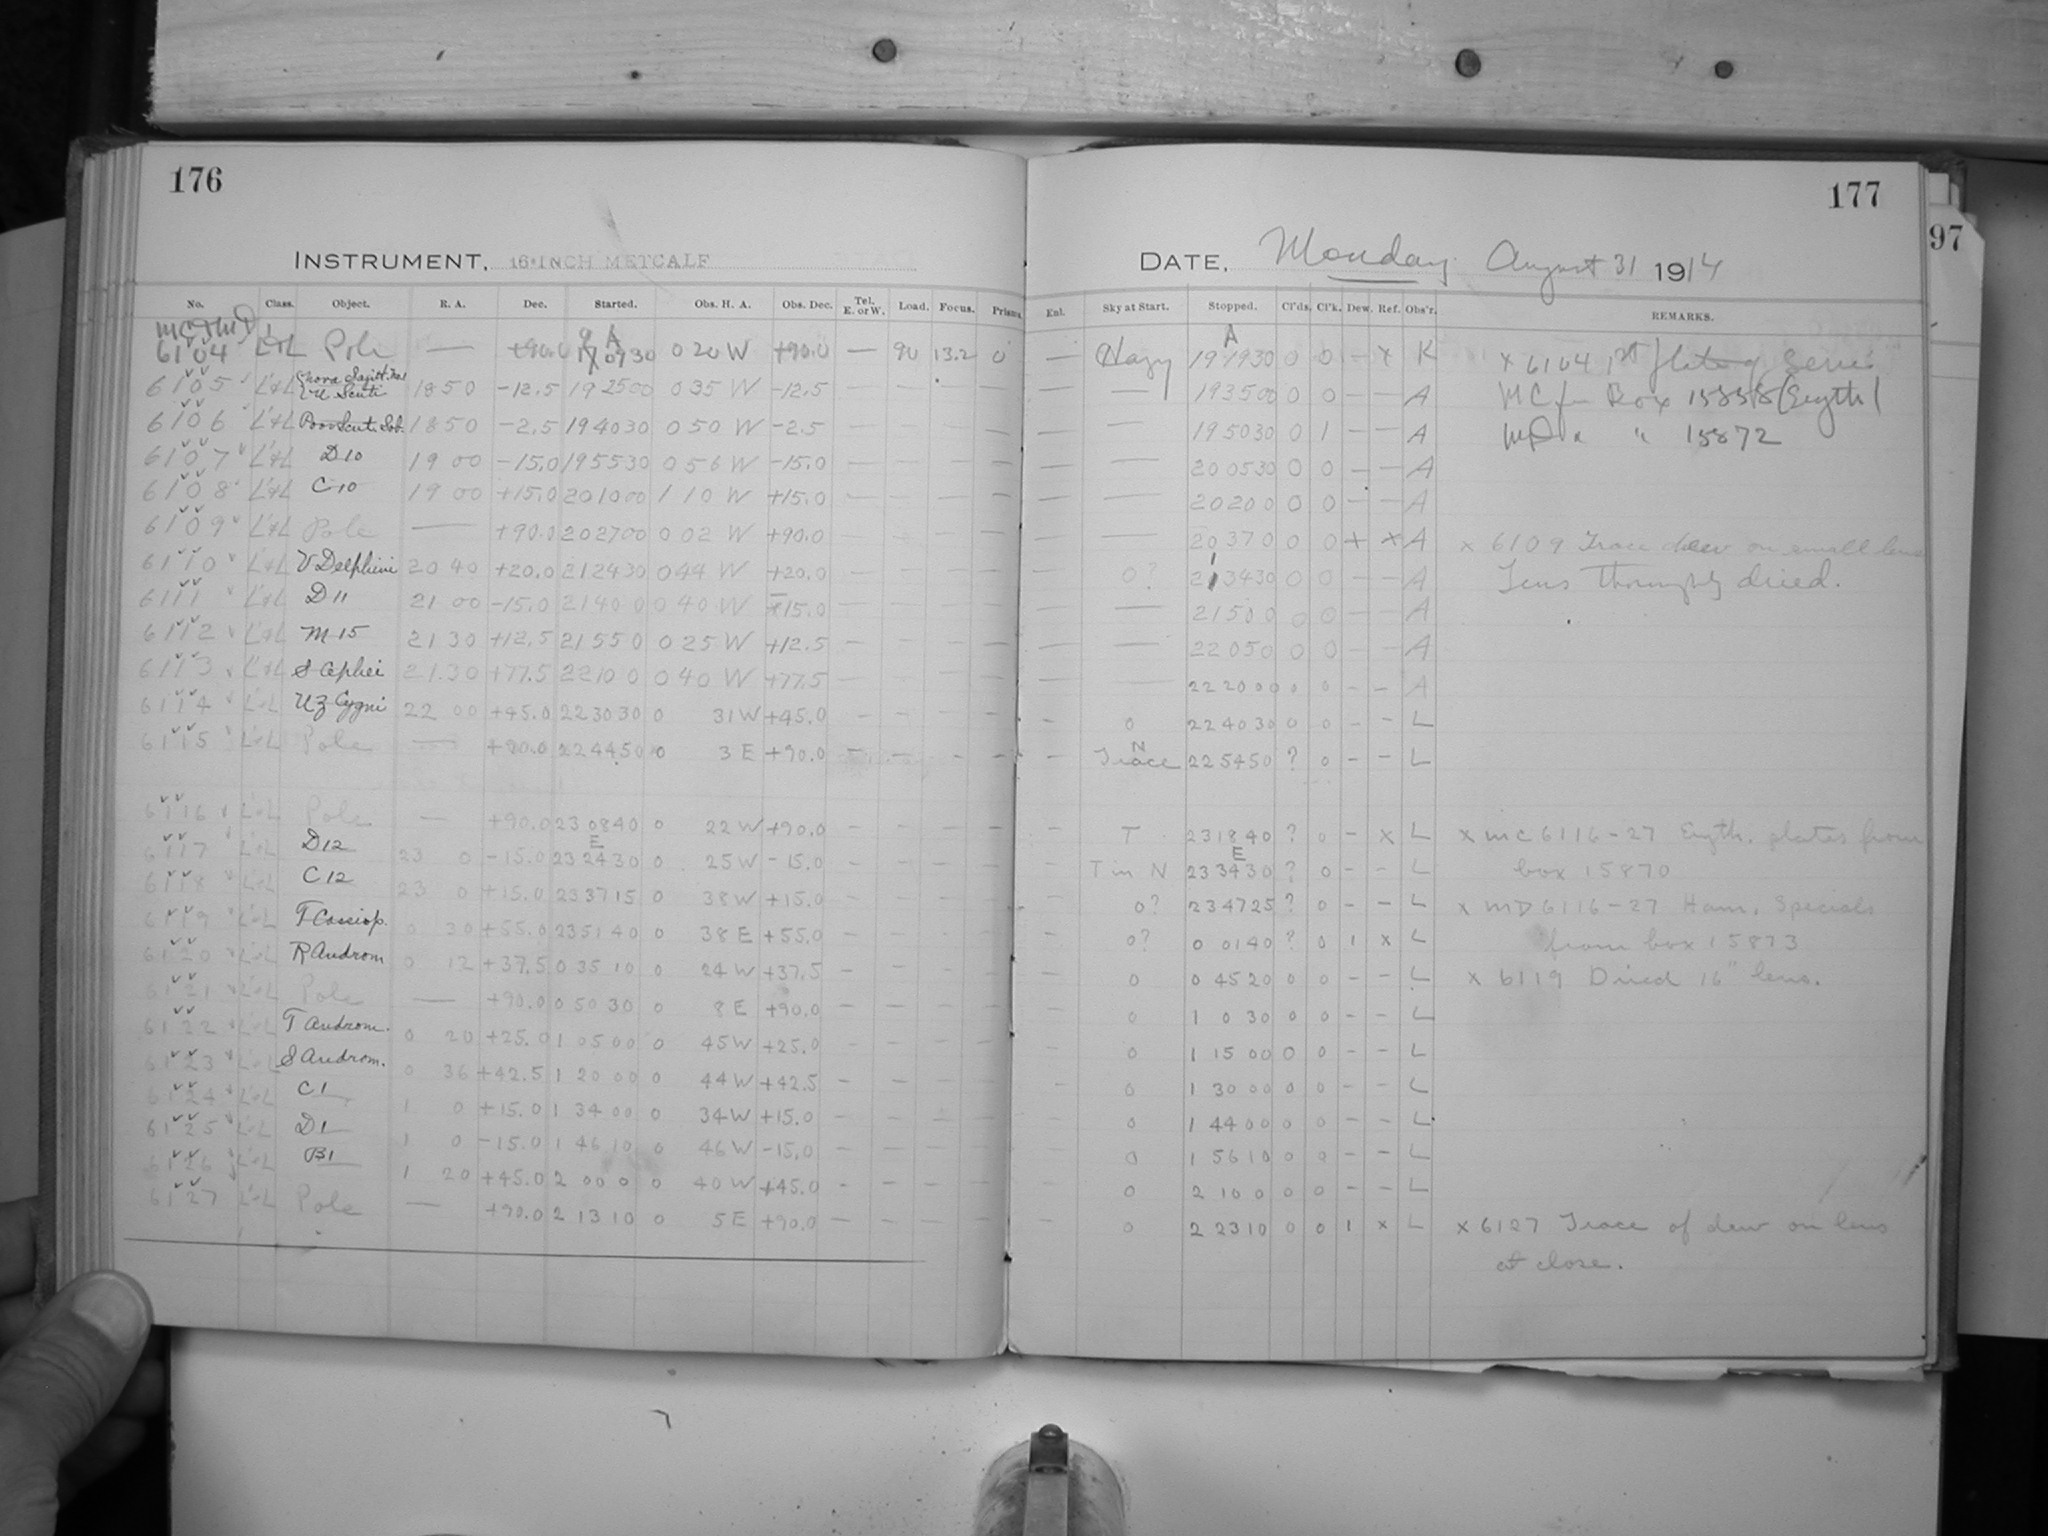 176
177
97
INSTRUMENT, 16-INCH METCALF
DATE, Monday August 31 1914
No. Class. Object. R. A. Dec. Started. Obs. H. A. Obs. Dec. Tel. E. or W. Load. Focus. Prisms. Enl. Sky at Start. Stopped. Cl'ds. Cl'k. Dew. Ref. Obs'r. REMARKS.
MC & MD
6104 L&L Pole — +90.0 19 09 30 0 20 W +90.0 — 90 13.2 0 — Hazy 19 19 30 0 0 — x K x 6104 1st plate of series
6105 L&L 18 50 −12.5 19 25 00 0 35 W −12.5 — — — — — — 19 35 00 0 0 — — A MC from Box 15858 (Eryth)
6106 L&L 18 50 −2.5 19 40 30 0 50 W −2.5 — — — — — — 19 50 30 0 1 — — A MD " " 15872
6107 L&L D10 19 00 −15.0 19 55 30 0 56 W −15.0 — — — — — — 20 05 30 0 0 — — A
6108 L&L C10 19 00 +15.0 20 10 00 1 10 W +15.0 — — — — — — 20 20 0 0 0 — — A
6109 L&L Pole — +90.0 20 27 00 0 02 W +90.0 — — — — — — 20 37 0 0 0 x x A x 6109 Trace dew on small lens
6110 L&L V Delphini 20 40 +20.0 21 24 30 0 44 W +20.0 — — — — — 0? 21 34 30 0 0 — — A Lens thoroughly dried.
6111 L&L D11 21 00 −15.0 21 40 0 0 40 W −15.0 — — — — — — 21 50 0 0 0 — — A
6112 L&L M 15 21 30 +12.5 21 55 0 0 25 W +12.5 — — — — — — 22 05 0 0 0 — — A
6113 L&L S Cephei 21 30 +77.5 22 10 0 0 40 W +77.5 — — — — — — 22 20 00 0 0 — — A
6114 L&L UZ Cygni 22 00 +45.0 22 30 30 0 31 W +45.0 — — — — — 0 22 40 30 0 0 — — L
6115 L&L Pole — +90.0 22 44 50 0 3 E +90.0 — — — — — Trace N 22 54 50 ? 0 — — L
6116 L&L Pole — +90.0 23 08 40 0 22 W +90.0 — — — — — T 23 18 40 ? 0 — x L x MC 6116-27 Eryth. plates from
6117 L&L D12 23 0 −15.0 23 24 30 0 25 W −15.0 — — — — — T in N 23 34 30 ? 0 — — L box 15870
6118 L&L C12 23 0 +15.0 23 37 15 0 38 W +15.0 — — — — — 0? 23 47 25 ? 0 — — L x MD 6116-27 Ham. Specials
6119 L&L T Cassiop. 0 30 +55.0 23 51 40 0 38 E +55.0 — — — — — 0? 0 01 40 ? 0 1 x L from box 15873
6120 L&L R Androm 0 12 +37.5 0 35 10 0 24 W +37.5 — — — — — 0 0 45 20 0 0 — — L x 6119 Dried 16" lens.
6121 L&L Pole — +90.0 0 50 30 0 8 E +90.0 — — — — — 0 1 0 30 0 0 — — L
6122 L&L T Androm. 0 20 +25.0 1 05 00 0 45 W +25.0 — — — — — 0 1 15 00 0 0 — — L
6123 L&L S Androm. 0 36 +42.5 1 20 00 0 44 W +42.5 — — — — — 0 1 30 00 0 0 — — L
6124 L&L C1 1 0 +15.0 1 34 00 0 34 W +15.0 — — — — — 0 1 44 00 0 0 — — L
6125 L&L D1 1 0 −15.0 1 46 10 0 46 W −15.0 — — — — — 0 1 56 10 0 0 — — L
6126 L&L B1 1 20 +45.0 2 00 0 0 40 W +45.0 — — — — — 0 2 10 0 0 0 — — L
6127 L&L Pole — +90.0 2 13 10 0 5 E +90.0 — — — — — 0 2 23 10 0 0 1 x L x 6127 Trace of dew on lens
at close.